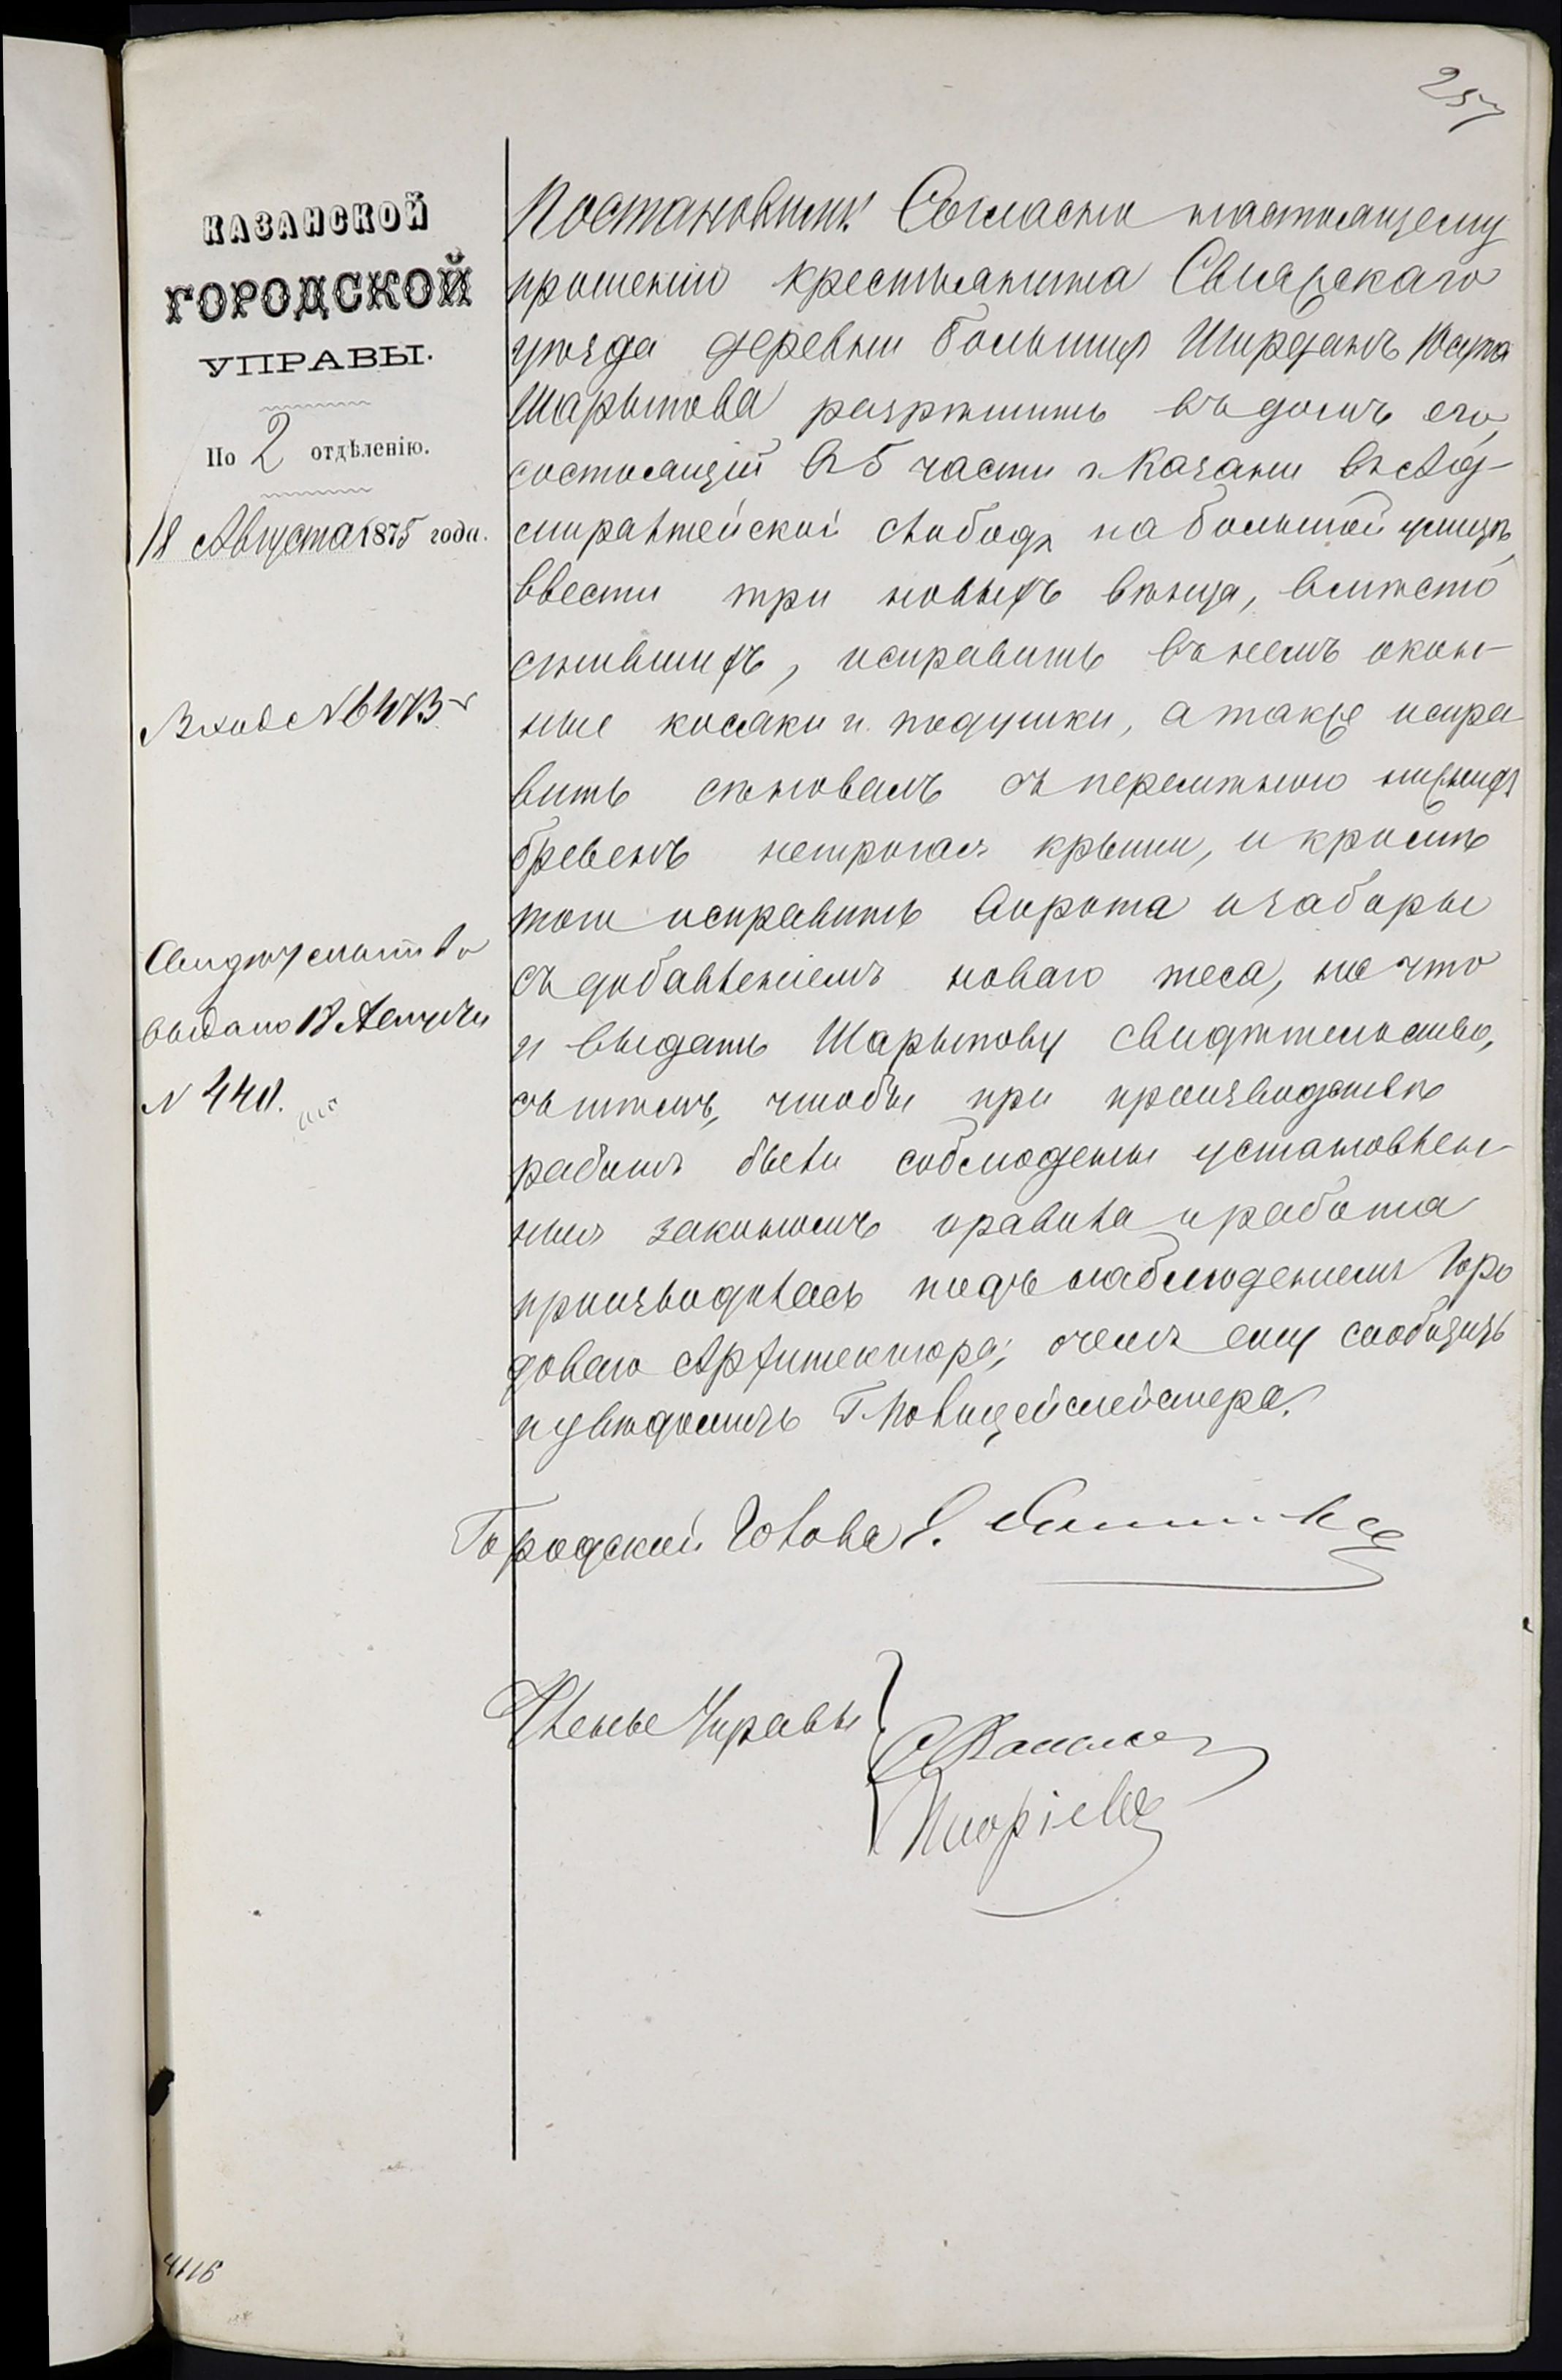 257
КАЗАНСКОЙ
ГОРОДСКОЙ
УПРАВЫ.
По 2 отдѣленію.
18 Августа 1875 года.
Вход № 6473
Свидѣтельство
выдано 18 Августа
№ 440.
Постановили: Согласно настоящему
прошенію крестьянина Свіяжскаго
уѣзда деревни большихъ Ширданъ Юсупа
Шарыпова разрѣшить въ домѣ его,
состоящій в 5 части г. Казани в Ад-
миралтейской слободѣ на большой улицѣ,
ввести три новыхъ вѣнца, вмѣсто
сгнившихъ, исправить въ немъ окон-
ные косяки и подушки, а также испра-
вить сѣновалъ съ перемѣною нижнихъ
бревенъ нетрогая крыши, и кромѣ
того исправить ворота и заборы
съ добавленіемъ новаго теса, на что
и выдать Шарыпову свидѣтельство,
съ тѣмъ, чтобы при производствѣ
работъ были соблюдены установлен-
ныя закономъ правила и работа
производилась подъ наблюденіемъ Горо
доваго Архитектора; о чемъ ему сообщить
и увѣдомить Г. Полицеймейстера.
Городской Голова Э.
Члены Управы
4116